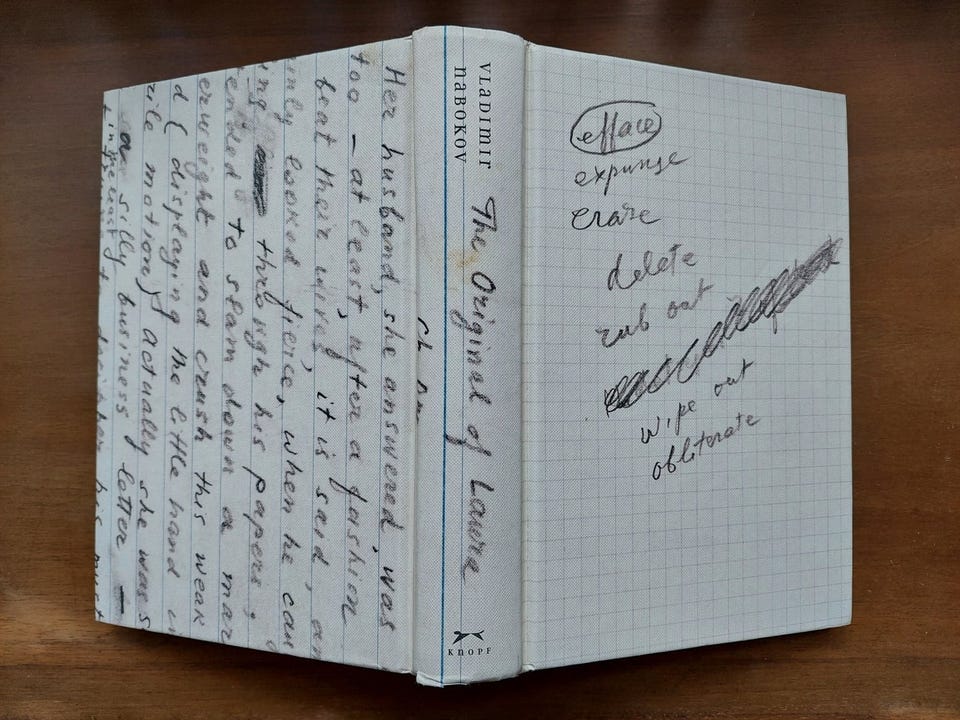 efface
expunge
erase
delete
rub out
wipe out
obliterate
VLADIMIR
NABOKOV
The Original of Laura
KNOPF
Her husband, she answered, was
too – at least, after a fashion
beat their wives, it is said, an
only looked fierce, when he
ing through his papers,
ended to slam down a mar
erweight and crush this weak
d { displaying the little hand
motion} actually she was
a silly business letter –